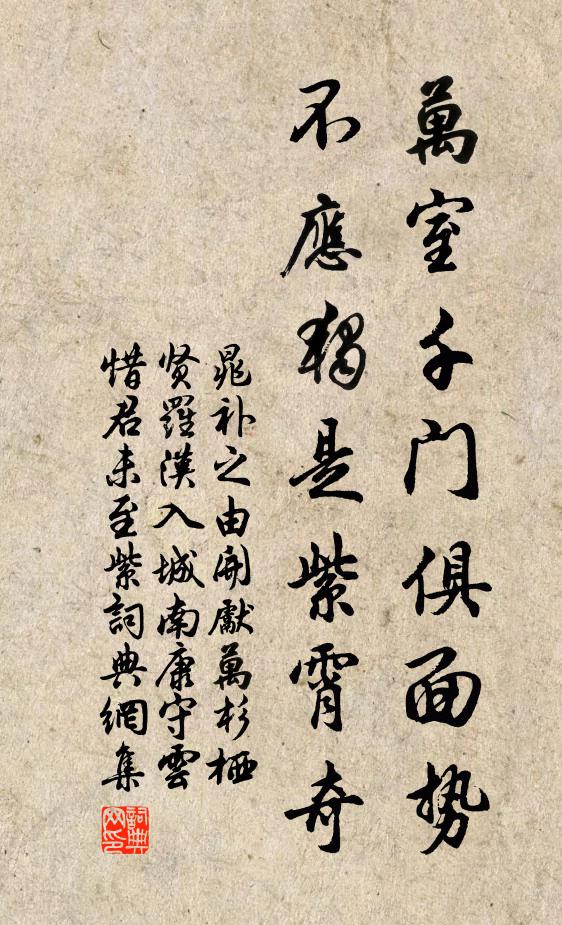 萬室千門俱面勢
不應獨是紫霄奇
晁补之由開獻萬杉栖
贤羅漢入城南康守雲
惜君未至紫詞典網集
詞典網印